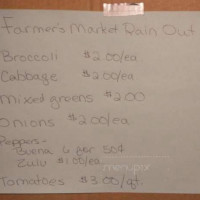 Farmer's Market Rain Out
Broccoli $2.00/ea
Cabbage $2.00/ea
Mixed greens $2.00
Onions $2.00/ea
Peppers-
Buena 6 for 50¢
Zulu $1.00/ea
Tomatoes $3.00/qt.